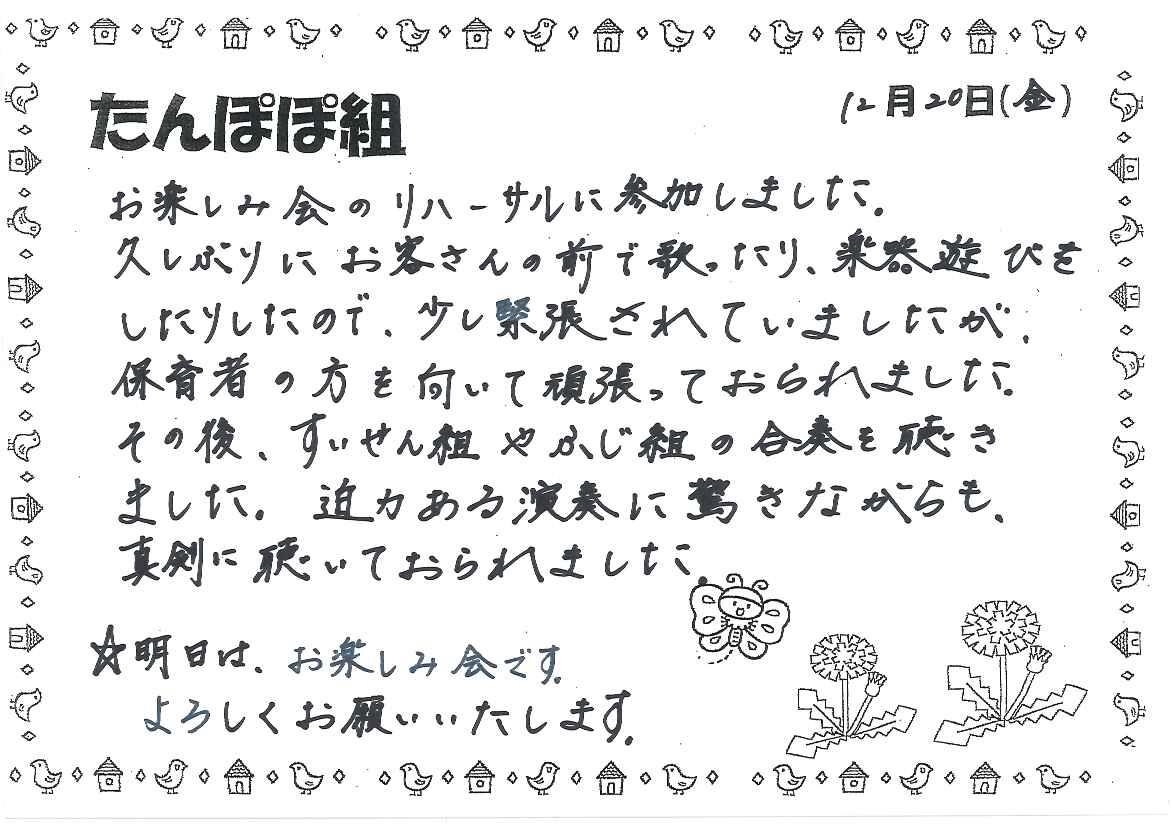 たんぽぽ組
12月20日(金)
お楽しみ会のリハーサルに参加しました。
久しぶりにお客さんの前で歌ったり、楽器遊びを
したりしたので、少し緊張されていましたが、
保育者の方を向いて頑張っておられました。
その後、すいせん組やふじ組の合奏を聴き
ました。迫力ある演奏に驚きながらも、
真剣に聴いておられました。
☆明日は、お楽しみ会です。
よろしくお願いいたします。